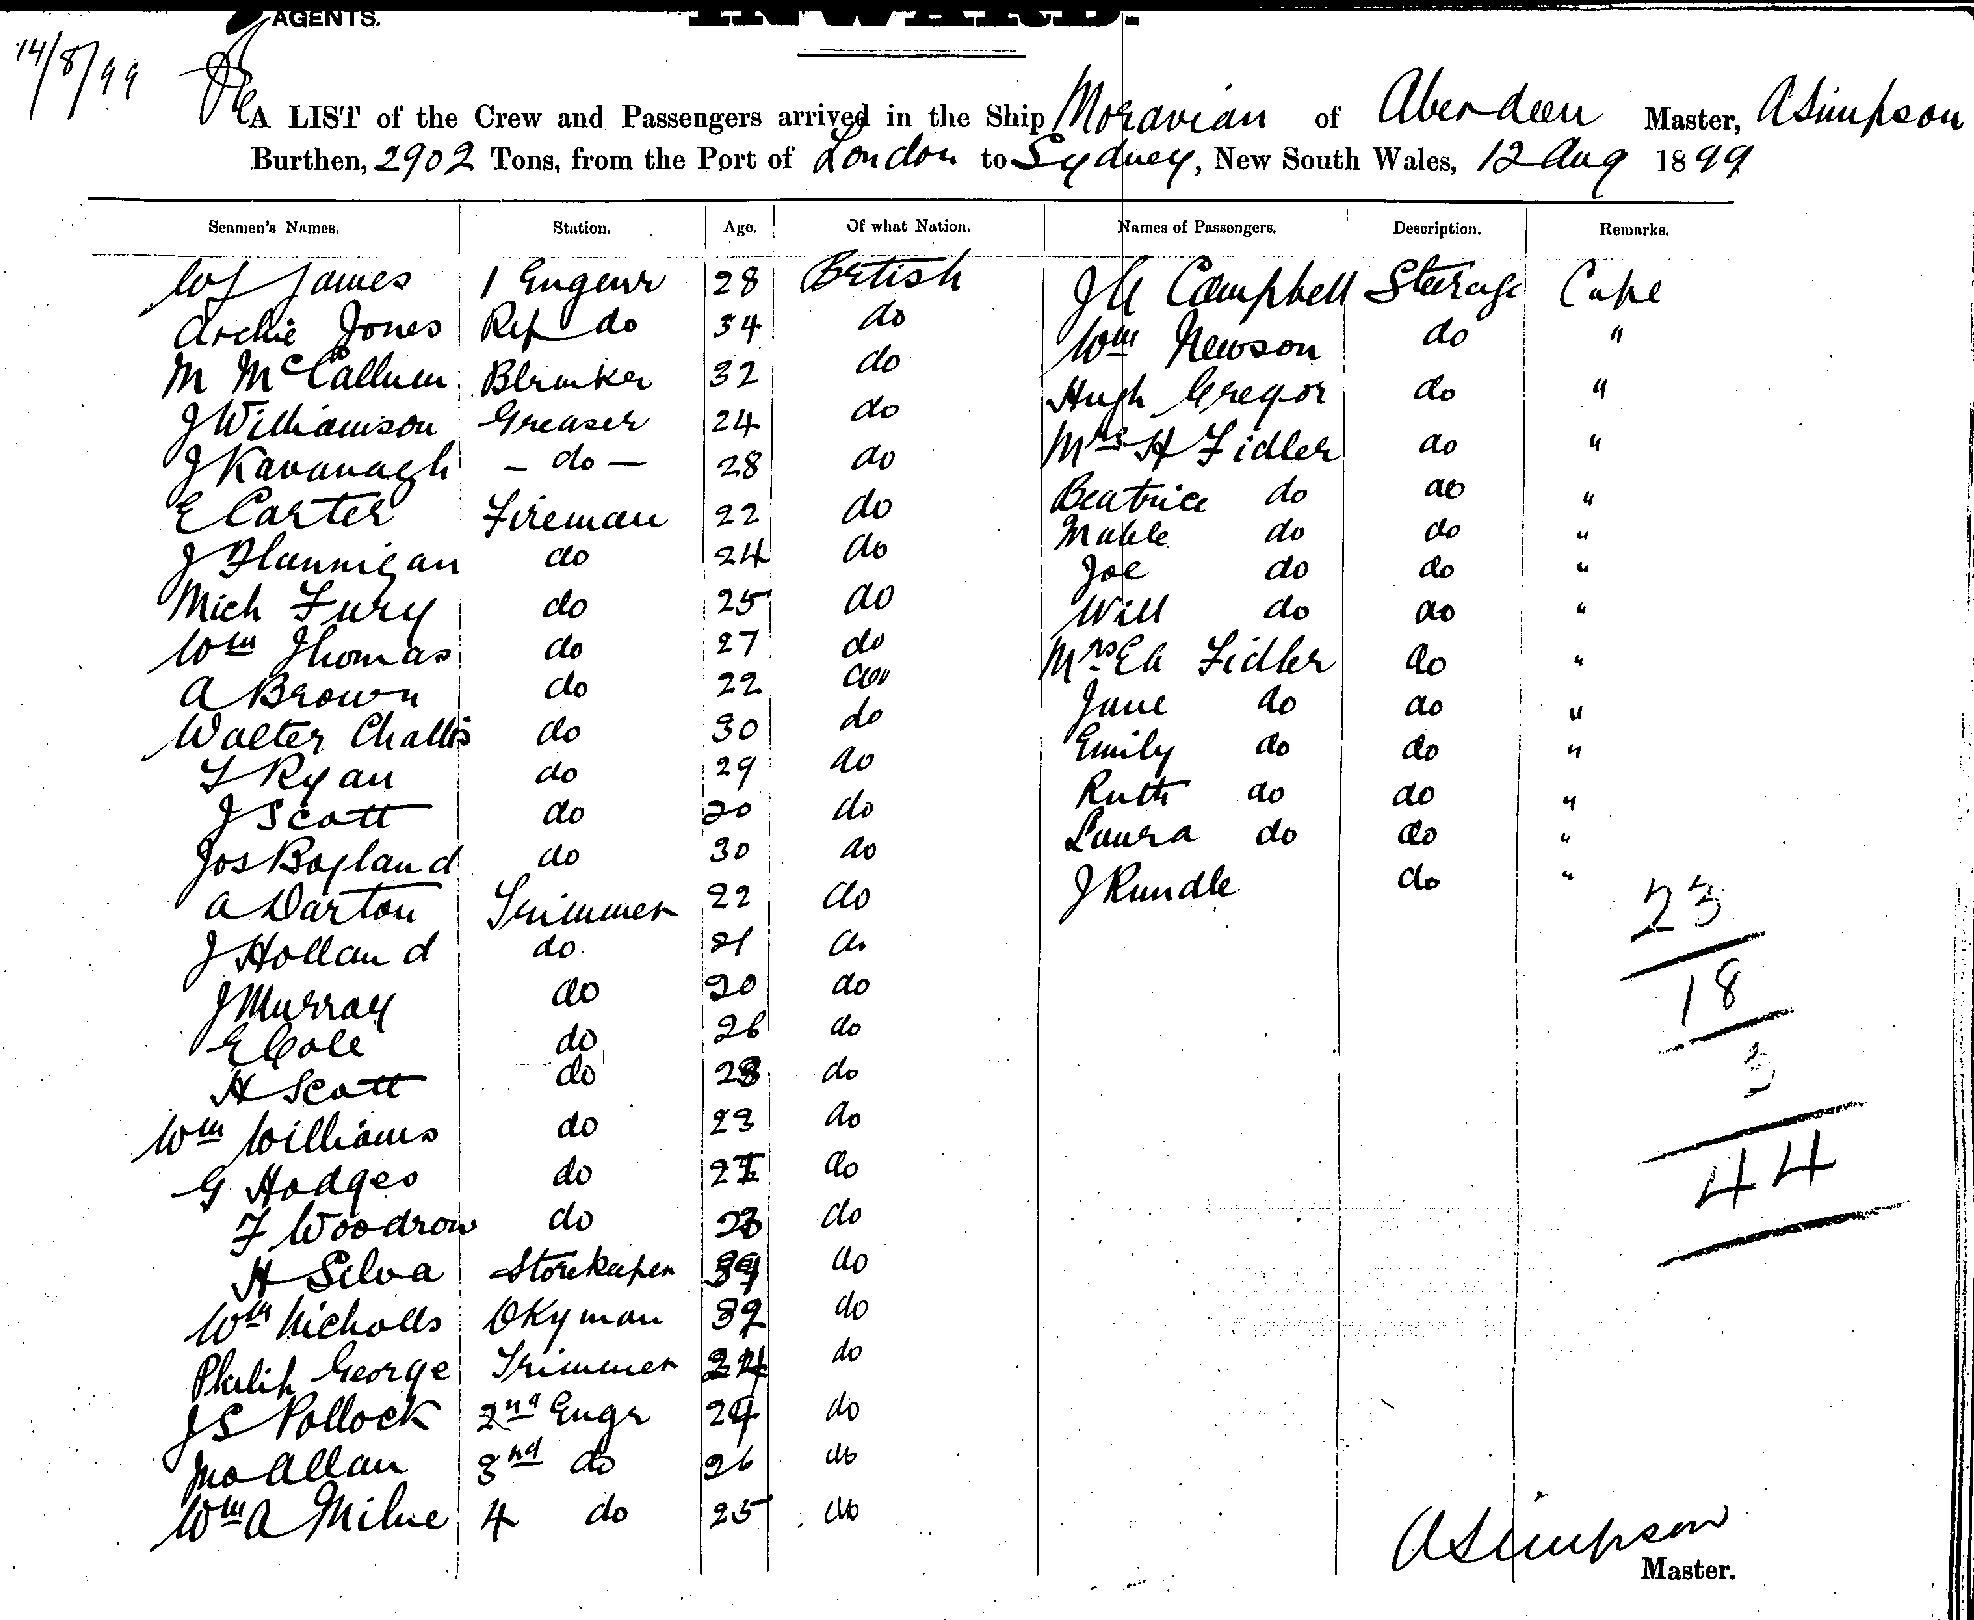 AGENTS.
INWARD.
14/8/99
A LIST of the Crew and Passengers arrived in the Ship Moravian of Aberdeen Master, A Simpson
Burthen, 2902 Tons, from the Port of London to Sydney, New South Wales, 12 Aug 1899
Seamen's Names. Station. Age. Of what Nation. Names of Passengers. Description. Remarks.
W J James 1 Engenr 28 British J A Campbell Steerage Cape
Archie Jones Ref do 34 do Wm Newson do "
M McCallum 32 do Hugh Gregor do "
J Williamson Greaser 24 do Mrs H Fidler do "
J Kavanagh - do - 28 do Beatrice do do "
E Carter Fireman 22 do Mable do do "
J Flannigan do 24 do Joe do do "
Mich Fury do 25 do Will do do "
Wm Thomas do 27 do Mrs Fidler do "
A Brown do 22 do Jane do do "
Walter Challis do 30 do Emily do do "
T Ryan do 29 do Ruth do do "
J Scott do 20 do Laura do do "
Jos Boyland do 30 do J Rundle do "
A Darton Trimmer 22 do 23
J Holland do 21 do 18
J Murray do 20 do
E Cole do 26 do 3
H Scott do 28 do
Wm Williams do 23 do 44
G Hodges do do
F Woodrow do do
H Silva Storekeeper do
Wm Nicholls Dkyman 32 do
Philip George Trimmer 24 do
J S Pollock 2nd Engr do
Jno Allan 3nd do 26 do
Wm A Milne 4 do 25 do
A Simpson
Master.